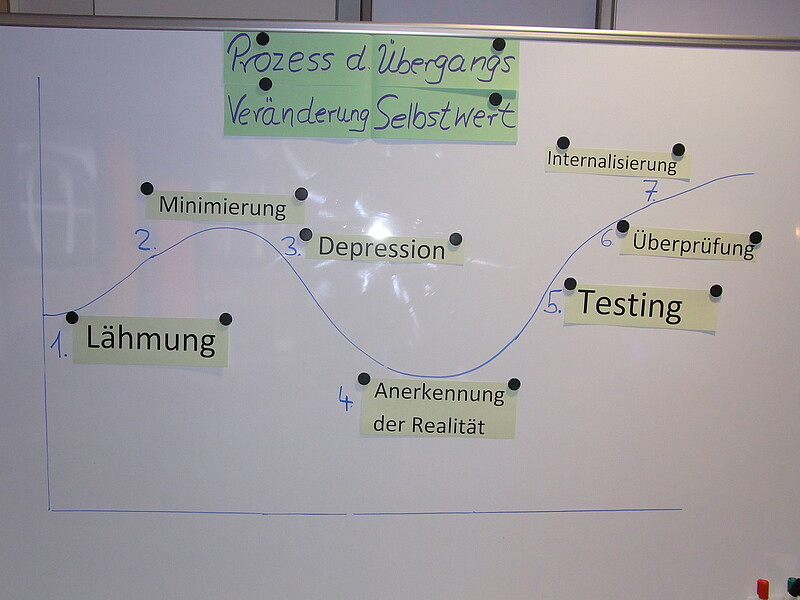 Prozess d. Übergangs
Veränderung Selbstwert
Internalisierung
7.
Minimierung
2.
3. Depression
6 Überprüfung
5. Testing
1. Lähmung
4. Anerkennung
der Realität